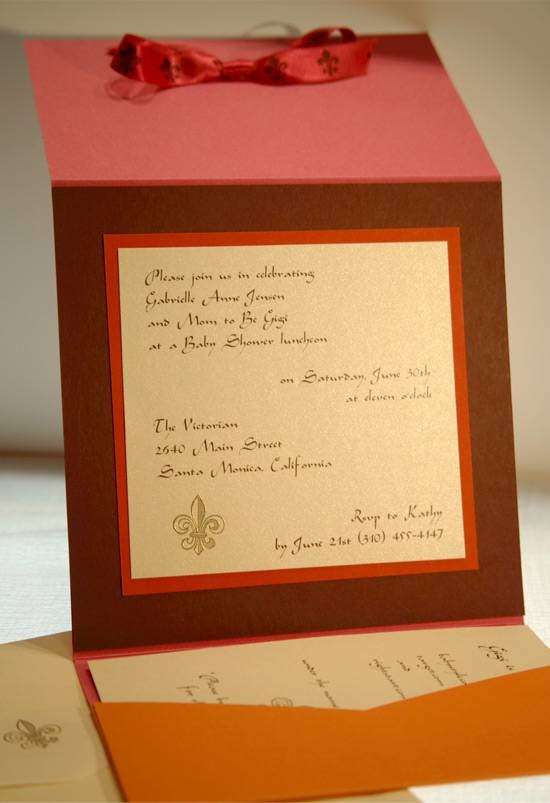 Please join us in celebrating
Gabrielle Anne Jensen
and Mom to Be Gigi
at a Baby Shower luncheon
on Saturday, June 30th
at eleven o'clock
The Victorian
2640 Main Street
Santa Monica, California
Rsvp to Kathy
by June 21st (310) 455-4147
Gigi
and
under the